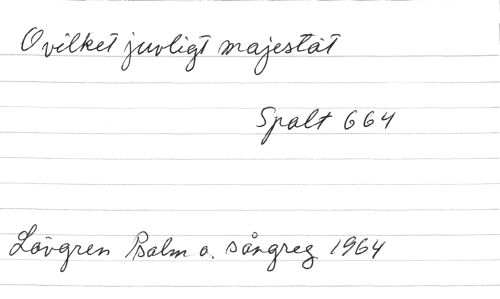 O vilket juvligt majestät
Spalt 664
Lövgren Psalm o. sångreg 1964